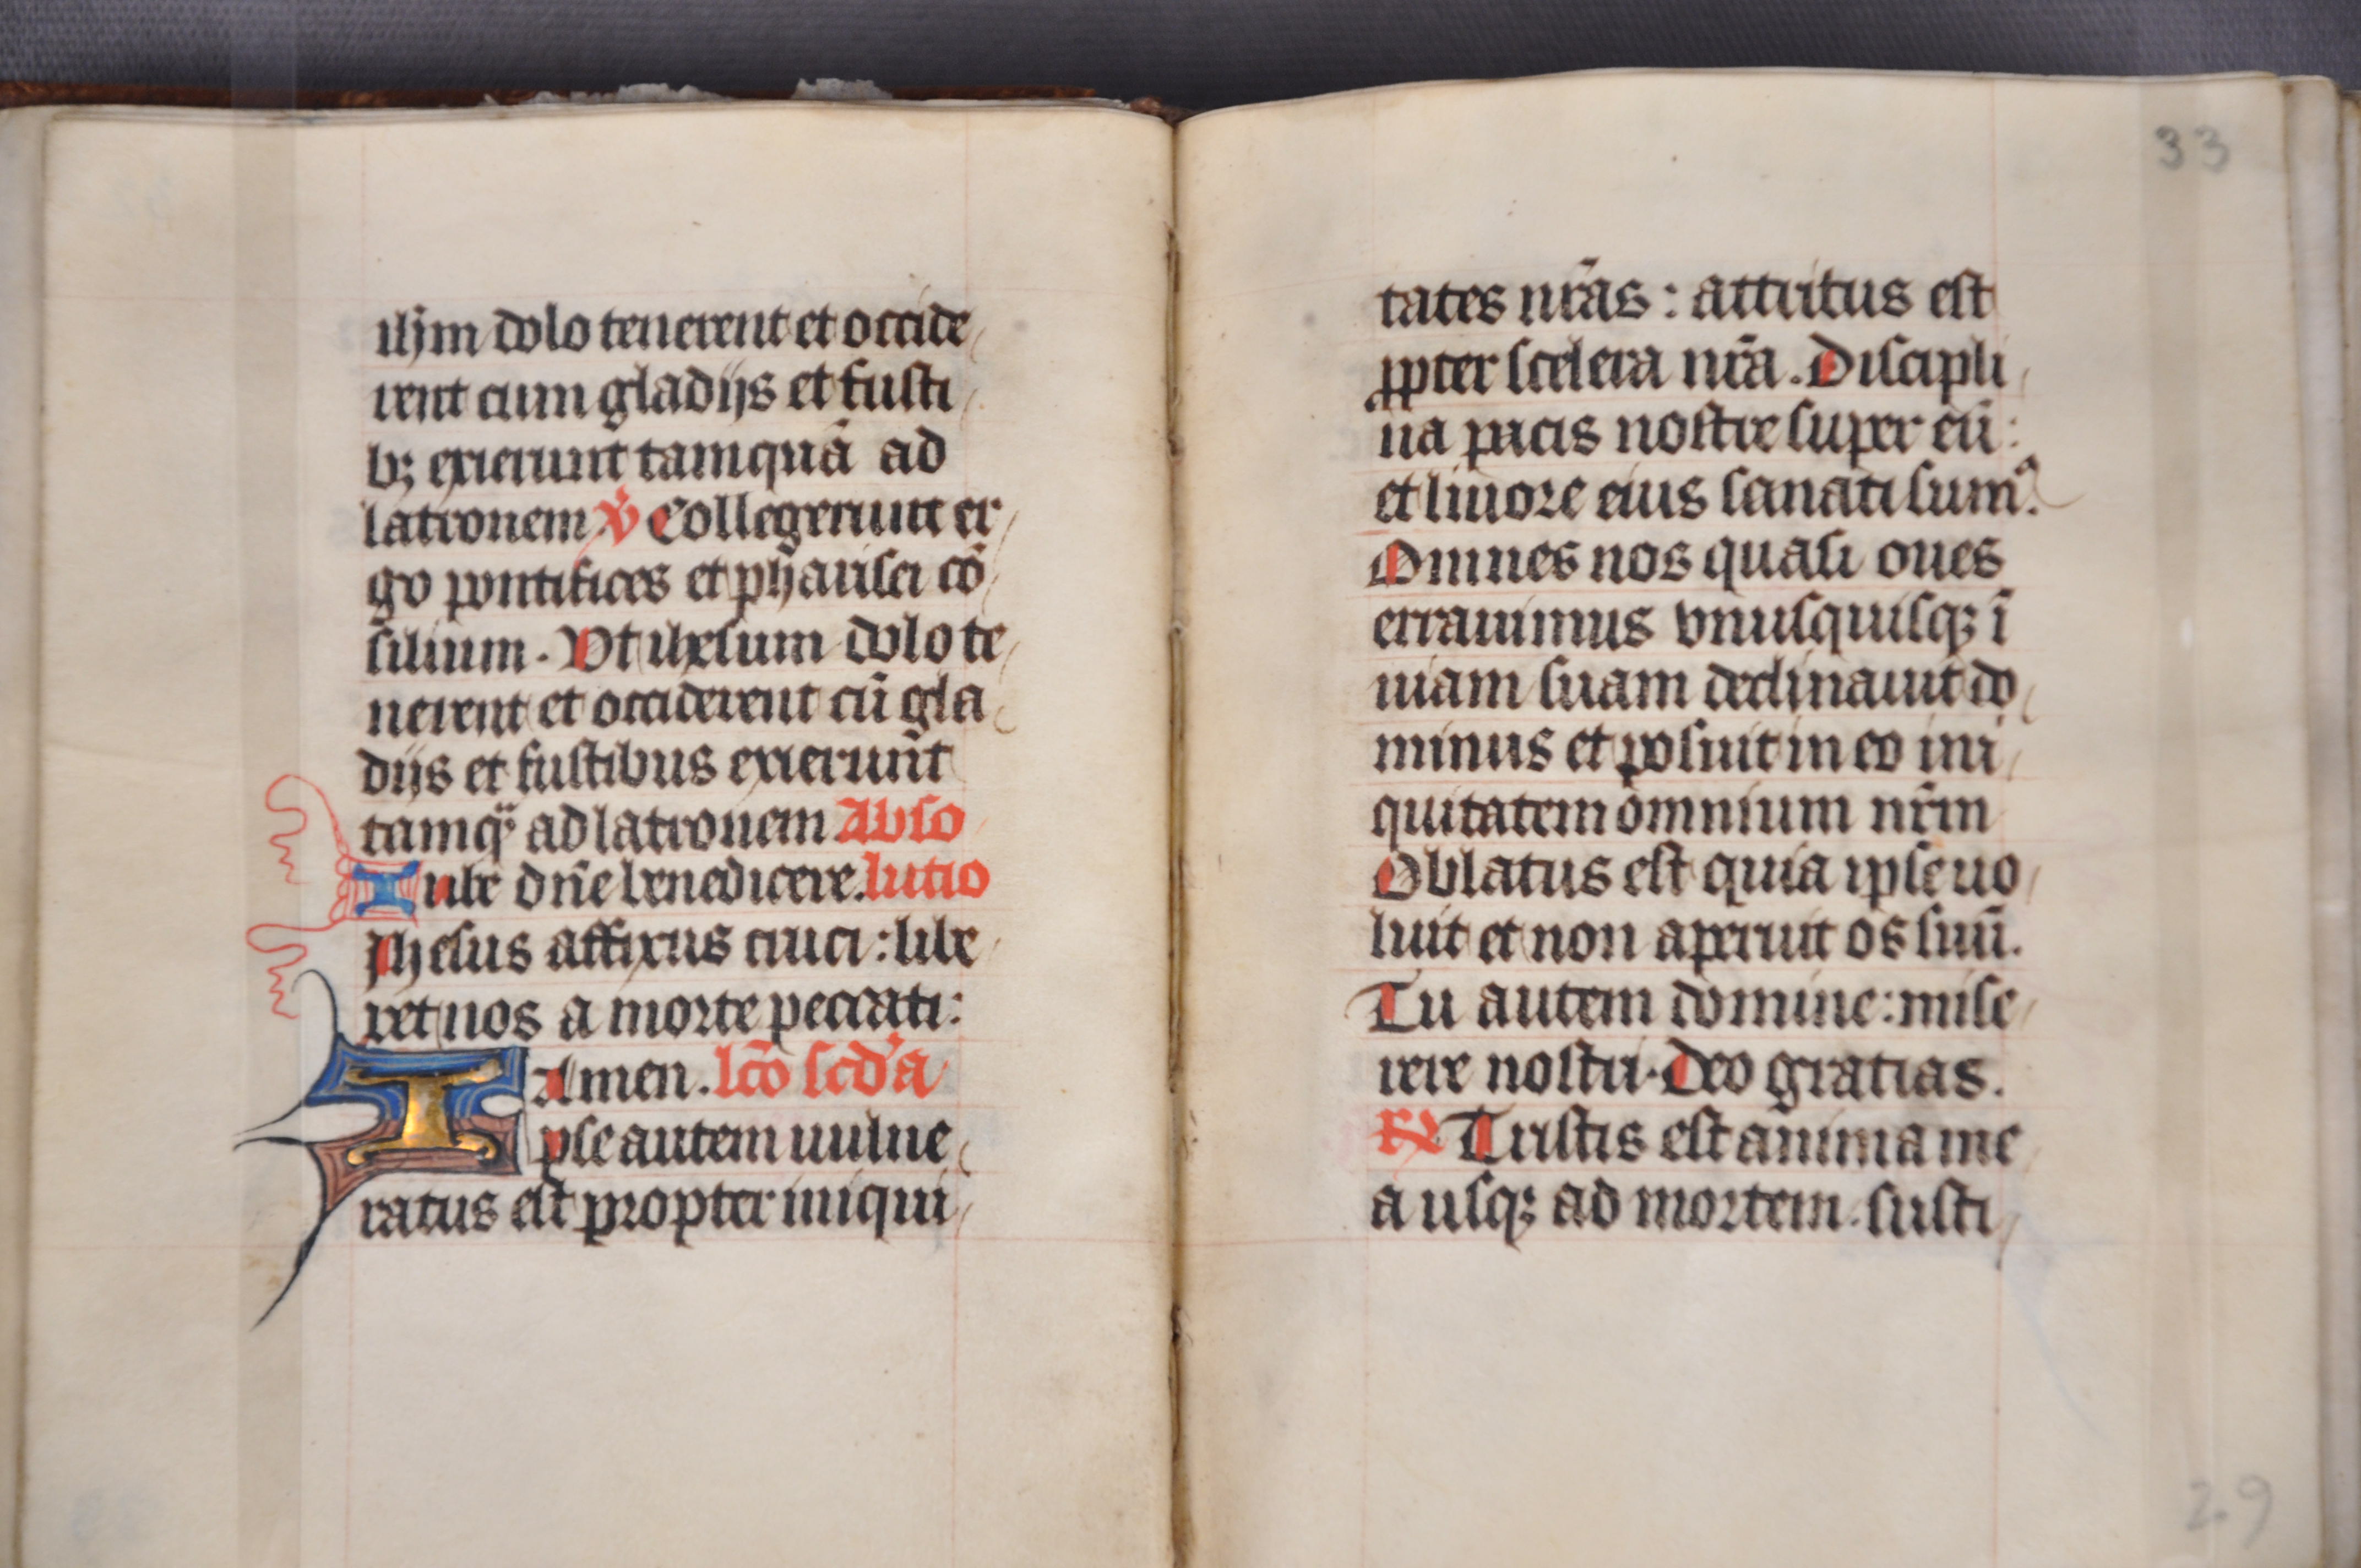 ihm̄ dolo tenerent et occide
rent cum gladijs et fusti
bꝫ exierunt tamquā ad
latronem ℣ Collegerunt er
go pontifices et pharisei cō
silium. Vt ihesum dolo te
nerent et occiderent cū gla
dijs et fustibus exierunt
tamqᷓ ad latronem Abso
Iube dn̄e benedicere. lutio
Ihesus affixus cruci: libe
ret nos a morte peccati:
Amen. lc̄o scd'a
Ipse autem uulne
ratus est propter iniqui
33
tates nr̄as: attritus est
ꝓpter scelera nr̄a. Discipli
na pacis nostre super eū:
et liuore eius sanati sumꝰ.
Omnes nos quasi oues
errauimus vnusquisqꝫ ī
uiam suam declinauit do
minus et posuit in eo ini
quitatem omnium nr̄m
Oblatus est quia ipse uo
luit et non aperuit os suū.
Tu autem domine: mise
rere nostri. Deo gratias.
℞ Tristis est anima me
a usqꝫ ad mortem. susti
29